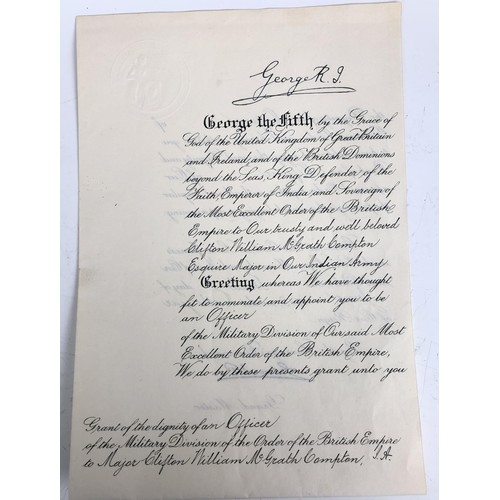 George R. I.
George the Fifth by the Grace of
God of the United Kingdom of Great Britain
and Ireland, and of the British Dominions
beyond the Seas, King, Defender of the
Faith, Emperor of India, and Sovereign of
the Most Excellent Order of the British
Empire to Our trusty and well beloved
Clifton William McGrath Compton
Esquire Major in Our Indian Army
Greeting whereas We have thought
fit to nominate and appoint you to be
an Officer
of the Military Division of Our said Most
Excellent Order of the British Empire,
We do by these presents grant unto you
Grant of the dignity of an Officer
of the Military Division of the Order of the British Empire
to Major Clifton William McGrath Compton, I.A.